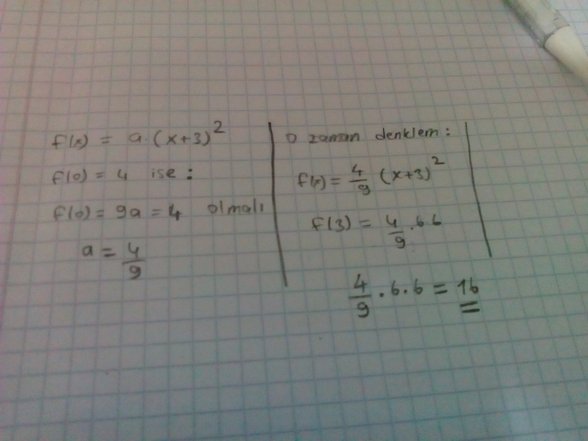 f(x) = a.(x+3)²
f(0) = 4 ise :
f(0) = 9a = 4 olmalı
a = 4/9
O zaman denklem :
f(x) = 4/9 (x+3)²
f(3) = 4/9 . 6 6
4/9 . 6 . 6 = 16